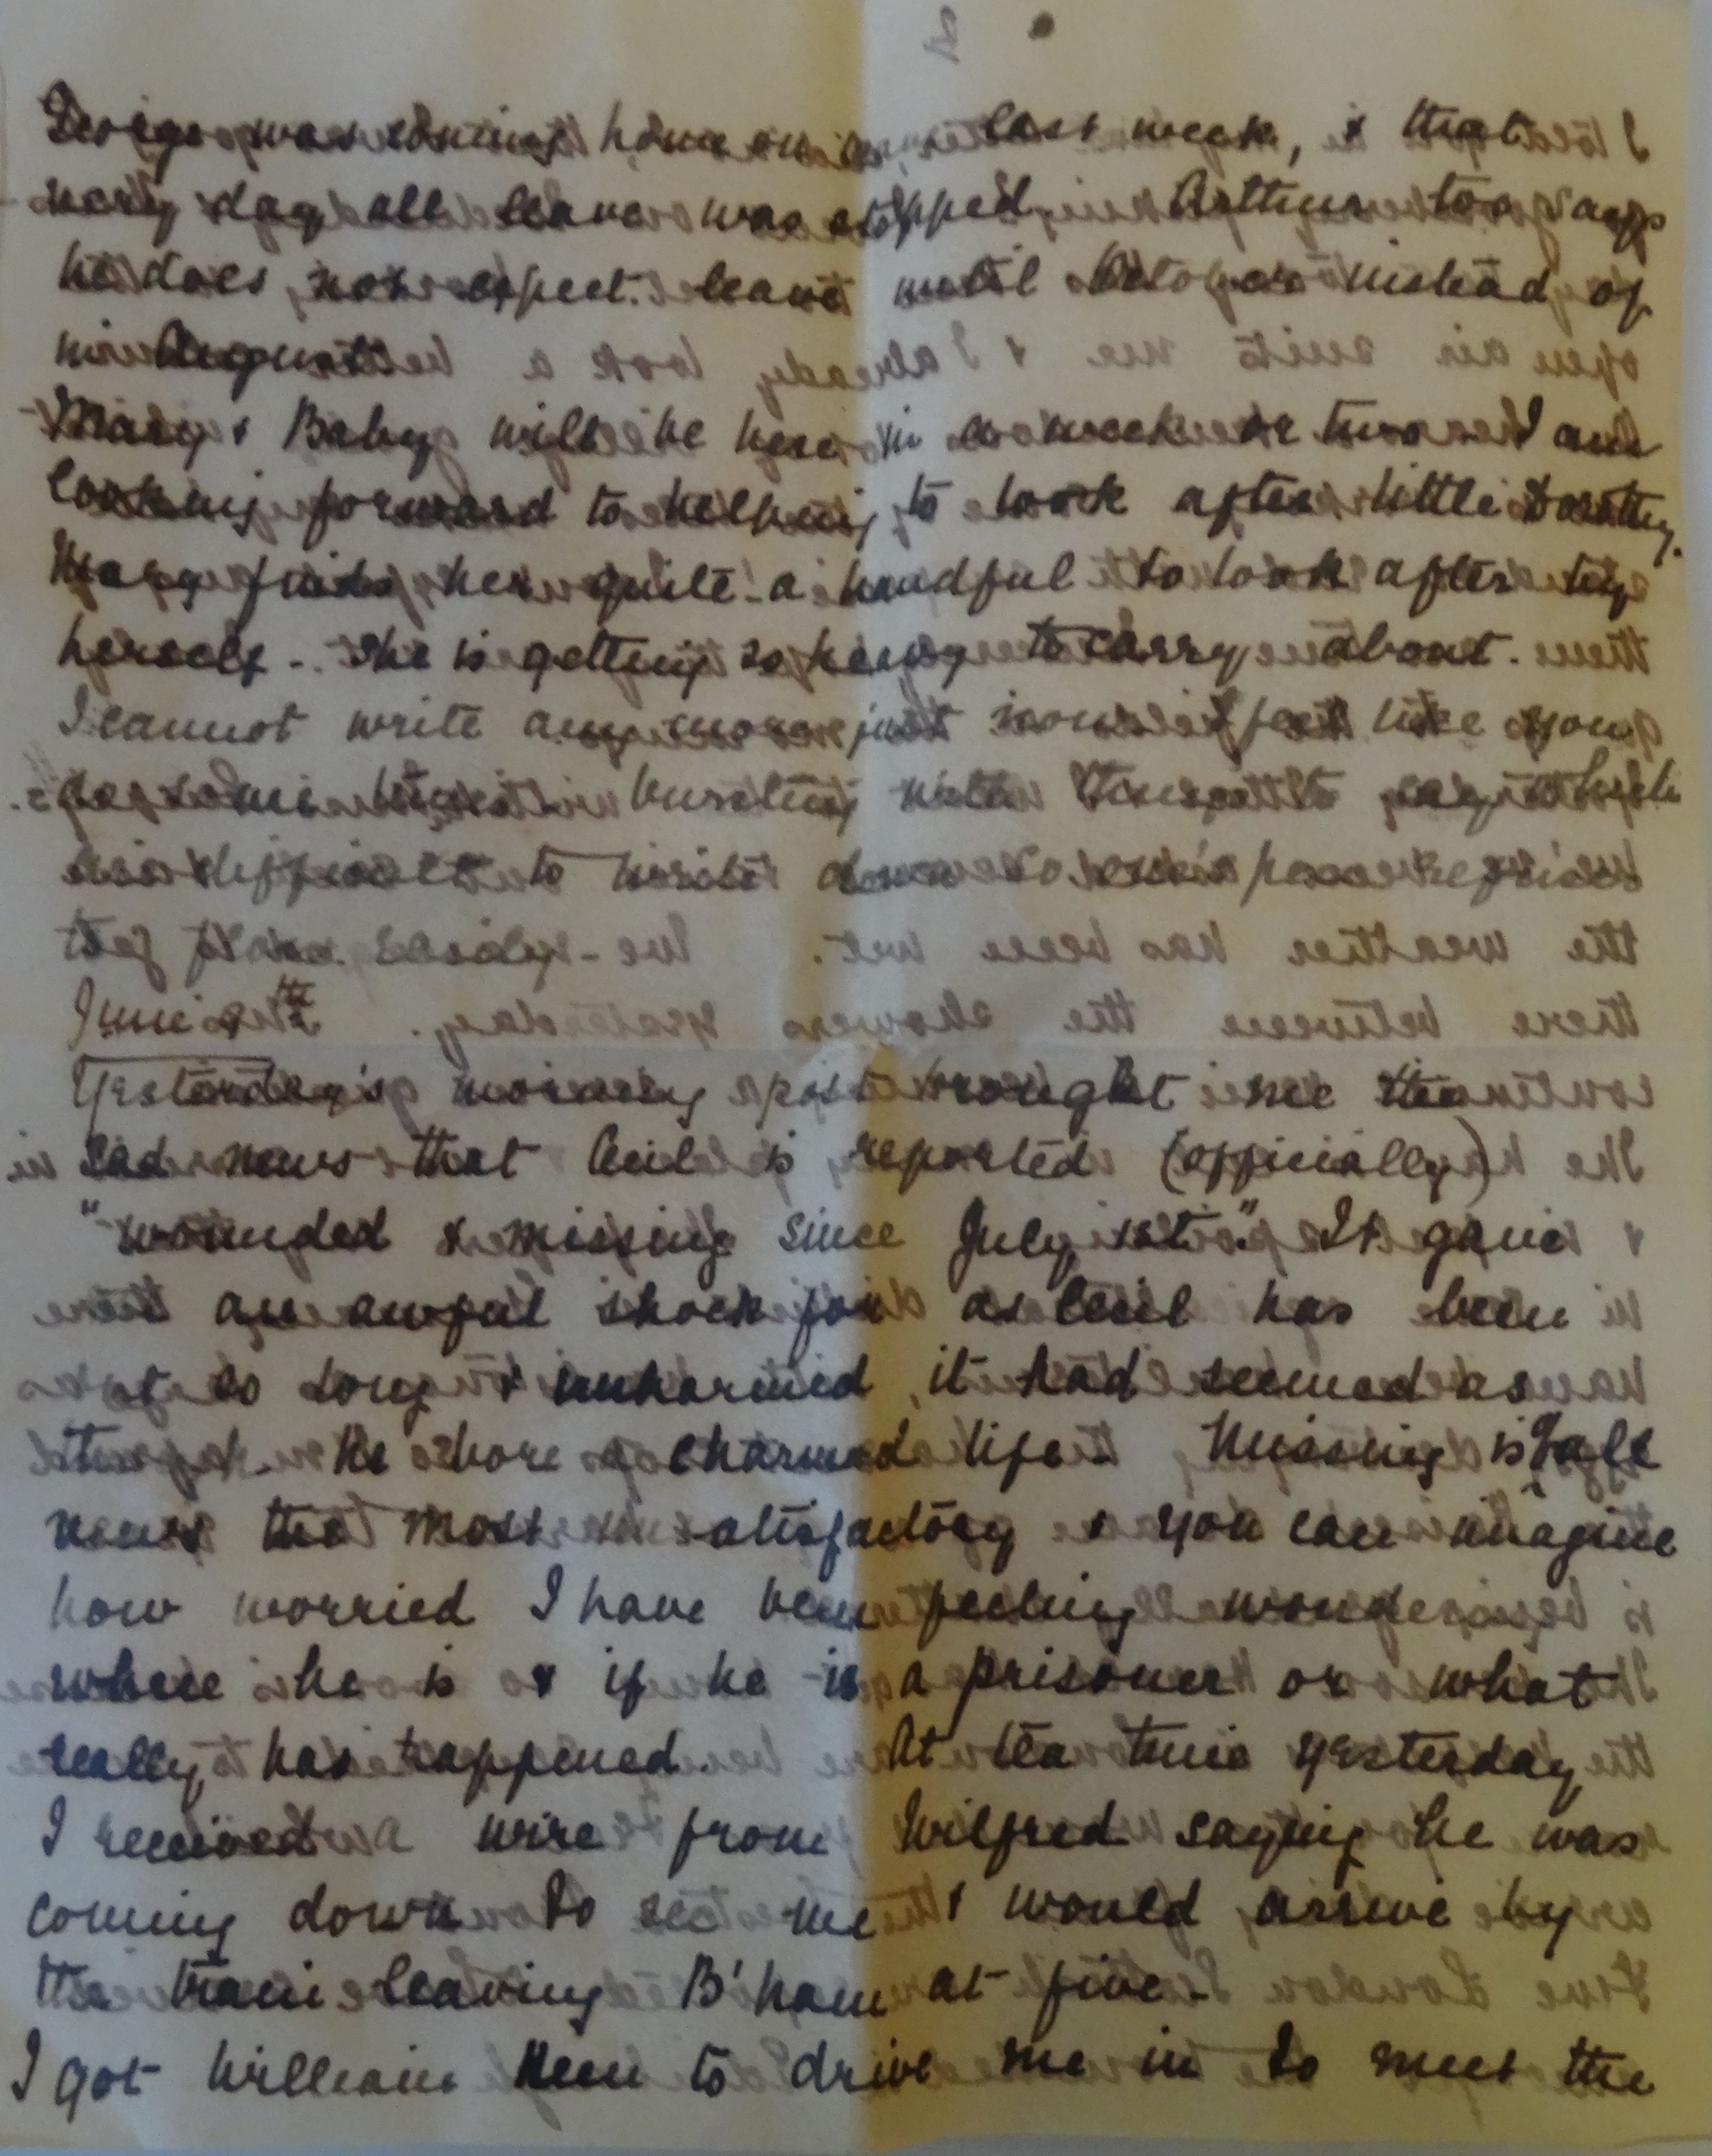 George was coming home on last week, & that
very day all leave was stopped. Arthur too says
he does not expect leave until October instead of
in August.
Mary & Baby will be here in a week or two & I am
looking forward to helping to look after little Dorothy.
Mary finds her quite a handful to look after by
herself - she is getting so heavy to carry about.
I cannot write any more just now I feel like you
bursting with things to say which
difficult to write down
June
Yesterday's morning post brought me the
sad news that Cecil is reported (officially)
"wounded & missing since July 1st". It gave
me an awful shock for as Cecil has been
out so long & unharmed, it had seemed as
though he bore a charmed life. Missing is of all
news the most unsatisfactory & you can imagine
how worried I have been feeling wondering
where he is & if he is a prisoner or what
really has happened. At tea time yesterday
I received a wire from Wilfred saying he was
coming down to see me & would arrive by
the train leaving B'ham at five.
I got William to drive me in to meet the